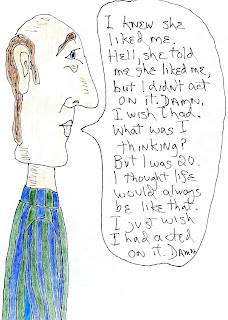 I KNEW SHE
LIKED ME.
HELL, SHE TOLD
ME SHE LIKED ME,
BUT I DIDN'T ACT
ON IT. DAMN,
I WISH I HAD.
WHAT WAS I
THINKING?
BUT I WAS 20.
I THOUGHT LIFE
WOULD ALWAYS
BE LIKE THAT.
I JUST WISH
I HAD ACTED
ON IT. DAMN